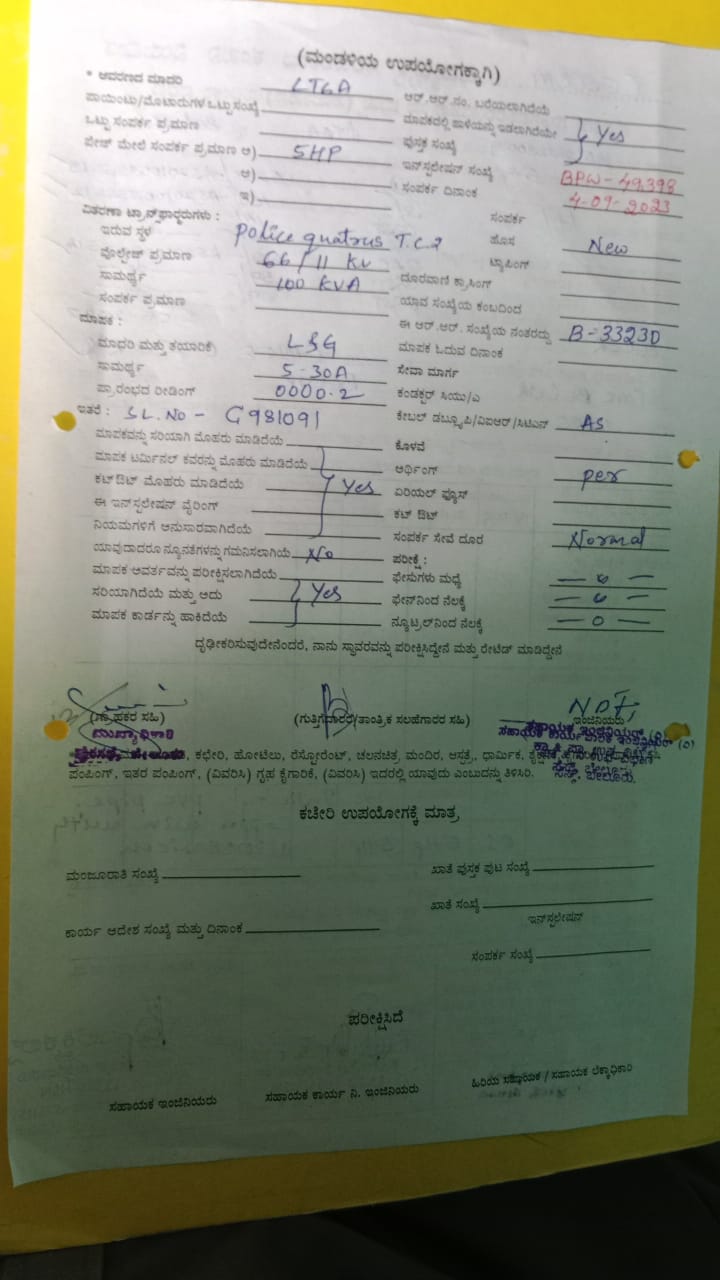 (ಮಂಡಳಿಯ ಉಪಯೋಗಕ್ಕಾಗಿ)
* ಆವರಣದ ಮಾದರಿ LT6A
ಆರ್.ಆರ್.ನಂ. ಬರೆಯಲಾಗಿದೆಯೆ
ಪಾಯಿಂಟು/ಮೋಟಾರುಗಳ ಒಟ್ಟು ಸಂಖ್ಯೆ
ಮಾಪಕದಲ್ಲಿ ಹಾಳೆಯನ್ನು ಇಡಲಾಗಿದೆಯೇ Yes
ಒಟ್ಟು ಸಂಪರ್ಕ ಪ್ರಮಾಣ
ಪುಸ್ತಕ ಸಂಖ್ಯೆ
ಪೇಜ್ ಮೇಲೆ ಸಂಪರ್ಕ ಪ್ರಮಾಣ ಅ) 5HP
ಇನ್‌ಸ್ಟಲೇಷನ್ ಸಂಖ್ಯೆ BPW-49398
ಆ)
ಸಂಪರ್ಕ ದಿನಾಂಕ 4-09-2023
ಇ)
ವಿತರಣಾ ಟ್ರಾನ್ಸ್‌ಫಾರ್ಮರುಗಳು :
ಸಂಪರ್ಕ
ಇರುವ ಸ್ಥಳ Police quatrus T.C.
ಹೊಸ New
ವೋಲ್ಟೇಜ್ ಪ್ರಮಾಣ 66/11 KV
ಟ್ಯಾಪಿಂಗ್
ಸಾಮರ್ಥ್ಯ 100 KVA
ದೂರವಾಣಿ ಕ್ರಾಸಿಂಗ್
ಸಂಪರ್ಕ ಪ್ರಮಾಣ
ಯಾವ ಸಂಖ್ಯೆಯ ಕಂಬದಿಂದ
ಮಾಪಕ :
ಈ ಆರ್.ಆರ್. ಸಂಖ್ಯೆಯ ನಂತರದ್ದು B-33230
ಮಾದರಿ ಮತ್ತು ತಯಾರಿಕೆ L&G
ಮಾಪಕ ಓದುವ ದಿನಾಂಕ
ಸಾಮರ್ಥ್ಯ 5-30A
ಸೇವಾ ಮಾರ್ಗ
ಪ್ರಾರಂಭದ ರೀಡಿಂಗ್ 0000.2
ಕಂಡಕ್ಟರ್ ಸಿಯು/ಎ
ಇತರೆ : SL.NO - G981091
ಕೇಬಲ್ ಡಬ್ಲ್ಯೂಪಿ/ವಿಐಆರ್/ಸಿಟಿಎಸ್ AS
ಮಾಪಕವನ್ನು ಸರಿಯಾಗಿ ಮೊಹರು ಮಾಡಿದೆಯೆ
ಕೊಳವೆ
ಮಾಪಕ ಟರ್ಮಿನಲ್ ಕವರನ್ನು ಮೊಹರು ಮಾಡಿದೆಯೆ
ಅರ್ಥಿಂಗ್ per
ಕಟ್‌ಔಟ್ ಮೊಹರು ಮಾಡಿದೆಯೆ Yes
ಏರಿಯಲ್ ಫ್ಯೂಸ್
ಈ ಇನ್‌ಸ್ಟಲೇಷನ್ ವೈರಿಂಗ್
ಕಟ್ ಔಟ್
ನಿಯಮಗಳಿಗೆ ಅನುಸಾರವಾಗಿದೆಯೆ
ಸಂಪರ್ಕ ಸೇವೆ ದೂರ Normal
ಯಾವುದಾದರೂ ನ್ಯೂನತೆಗಳನ್ನು ಗಮನಿಸಲಾಗಿಯೆ No
ಪರೀಕ್ಷೆ :
ಮಾಪಕ ಆವರ್ತವನ್ನು ಪರೀಕ್ಷಿಸಲಾಗಿದೆಯೆ
ಫೇಸುಗಳು ಮಧ್ಯೆ — 0 —
ಸರಿಯಾಗಿದೆಯೆ ಮತ್ತು ಅದು Yes
ಫೇಸ್‌ನಿಂದ ನೆಲಕ್ಕೆ — 0 —
ಮಾಪಕ ಕಾರ್ಡನ್ನು ಹಾಕಿದೆಯೆ
ನ್ಯೂಟ್ರಲ್‌ನಿಂದ ನೆಲಕ್ಕೆ — 0 —
ದೃಢೀಕರಿಸುವುದೇನೆಂದರೆ, ನಾನು ಸ್ಥಾವರವನ್ನು ಪರೀಕ್ಷಿಸಿದ್ದೇನೆ ಮತ್ತು ರೇಟೆಡ್ ಮಾಡಿದ್ದೇನೆ
(ಗ್ರಾಹಕರ ಸಹಿ)
(ಗುತ್ತಿಗೆದಾರರ/ತಾಂತ್ರಿಕ ಸಲಹೆಗಾರರ ಸಹಿ)
ಇಂಜಿನಿಯರು
ಮುಖ್ಯಾಧಿಕಾರಿ
ಪುರಸಭೆ, ಬೇಲೂರು
ಕಛೇರಿ, ಹೋಟೆಲು, ರೆಸ್ಟೋರೆಂಟ್, ಚಲನಚಿತ್ರ ಮಂದಿರ, ಆಸ್ಪತ್ರೆ, ಧಾರ್ಮಿಕ,
ಪಂಪಿಂಗ್, ಇತರ ಪಂಪಿಂಗ್, (ವಿವರಿಸಿ) ಗೃಹ ಕೈಗಾರಿಕೆ, (ವಿವರಿಸಿ) ಇದರಲ್ಲಿ ಯಾವುದು ಎಂಬುದನ್ನು ತಿಳಿಸಿರಿ.
ಕಚೇರಿ ಉಪಯೋಗಕ್ಕೆ ಮಾತ್ರ
ಮಂಜೂರಾತಿ ಸಂಖ್ಯೆ
ಖಾತೆ ಪುಸ್ತಕ ಪುಟ ಸಂಖ್ಯೆ
ಖಾತೆ ಸಂಖ್ಯೆ
ಕಾರ್ಯ ಆದೇಶ ಸಂಖ್ಯೆ ಮತ್ತು ದಿನಾಂಕ
ಇನ್‌ಸ್ಟಲೇಷನ್
ಸಂಪರ್ಕ ಸಂಖ್ಯೆ
ಪರೀಕ್ಷಿಸಿದೆ
ಸಹಾಯಕ ಇಂಜಿನಿಯರು
ಸಹಾಯಕ ಕಾರ್ಯ ನಿ. ಇಂಜಿನಿಯರು
ಹಿರಿಯ ಸಹಾಯಕ / ಸಹಾಯಕ ಲೆಕ್ಕಾಧಿಕಾರಿ